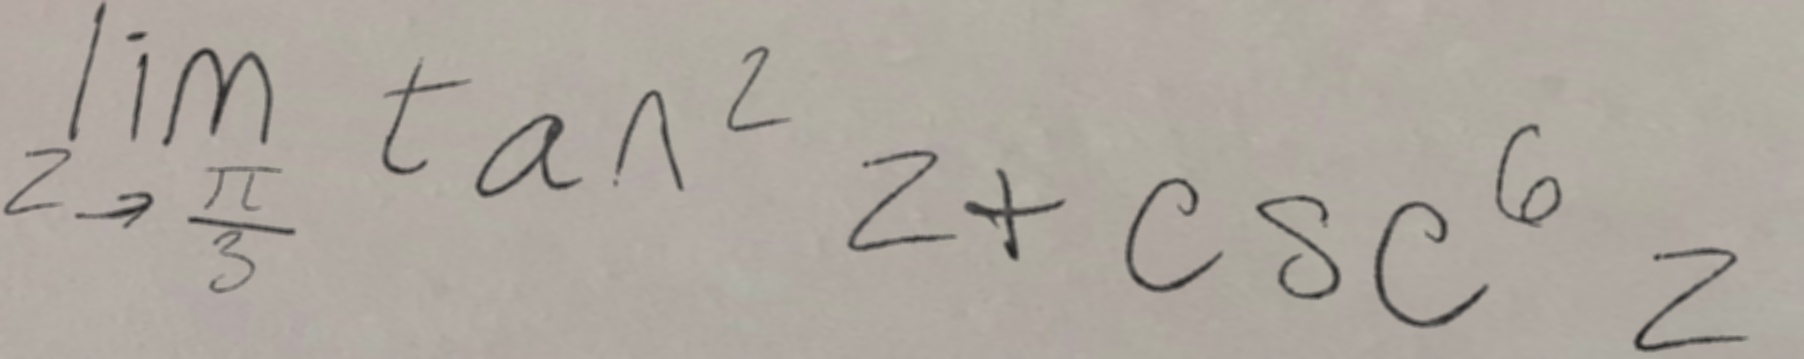 \lim_{z \to \frac{\pi}{3}} \tan^2 z + \csc^6 z